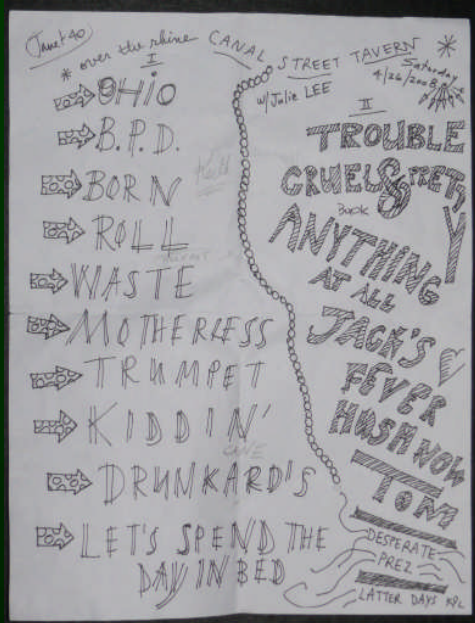 Janet 40
* over the rhine
CANAL STREET TAVERN *
w/ Julie LEE
Saturday
4/26/2008
I
OHIO
B.P.D.
BORN
ROLL
WASTE
MOTHERLESS
TRUMPET
KIDDIN'
DRUNKARD'S
LET'S SPEND THE
DAY IN BED
II
TROUBLE
CRUEL & PRETTY
ANYTHING
AT ALL
JACK'S
FEVER
HUSH NOW
TOM
DESPERATE
PREZ
LATTER DAYS